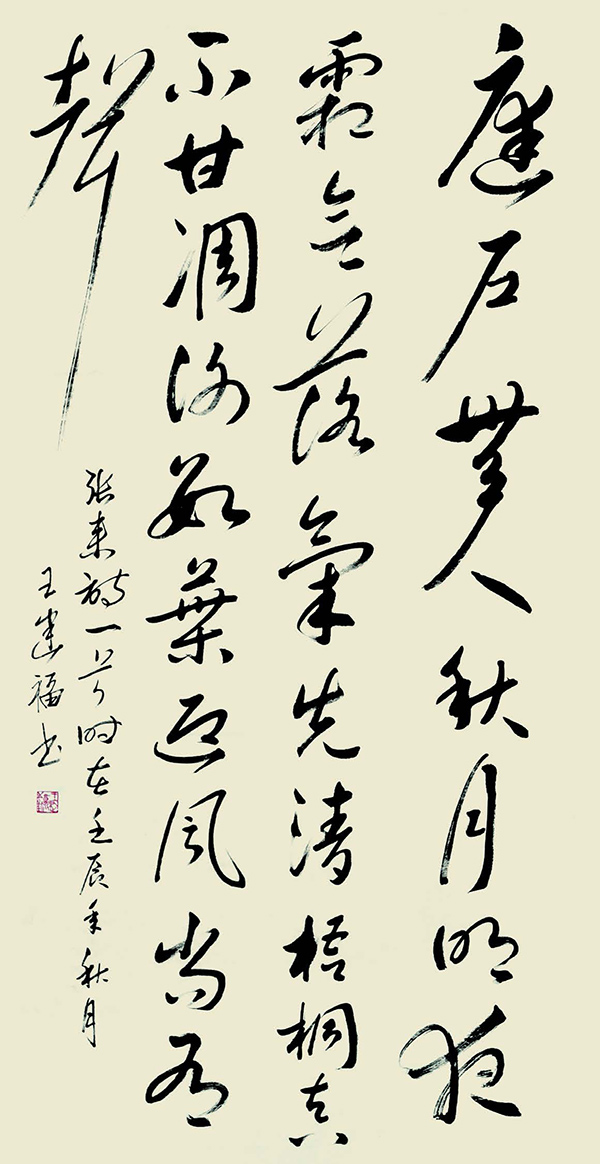 庭户無人秋月明夜
霜落氣先清梧桐真
不甘凋谢数葉迎風尚有
聲
张耒诗一首时在壬辰年秋月
王建福书